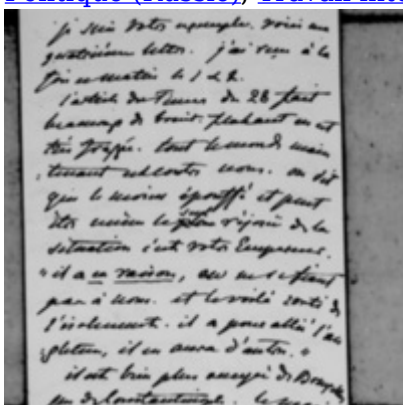 Politique (Russie), Travail inte
je suis votre exemple. voici une
quatrième lettre. j'ai reçu à la
fois ce matin le 1 & 2.
l'article du Times du 26 fait
beaucoup de bruit. Flahaut en est
très frappé. tout le monde main
tenant contre nous. on dit
que le moins et peut
être même le plus réjoui de la
situation c'est votre Empereur.
"il a eu raison, on ne se fiant
pas à nous. et le voilà sorti de
l'isolement. il a pour allié l'an
gleterre, il en aura d'autres."
il est bien plus occupé de
de Constantinople. le